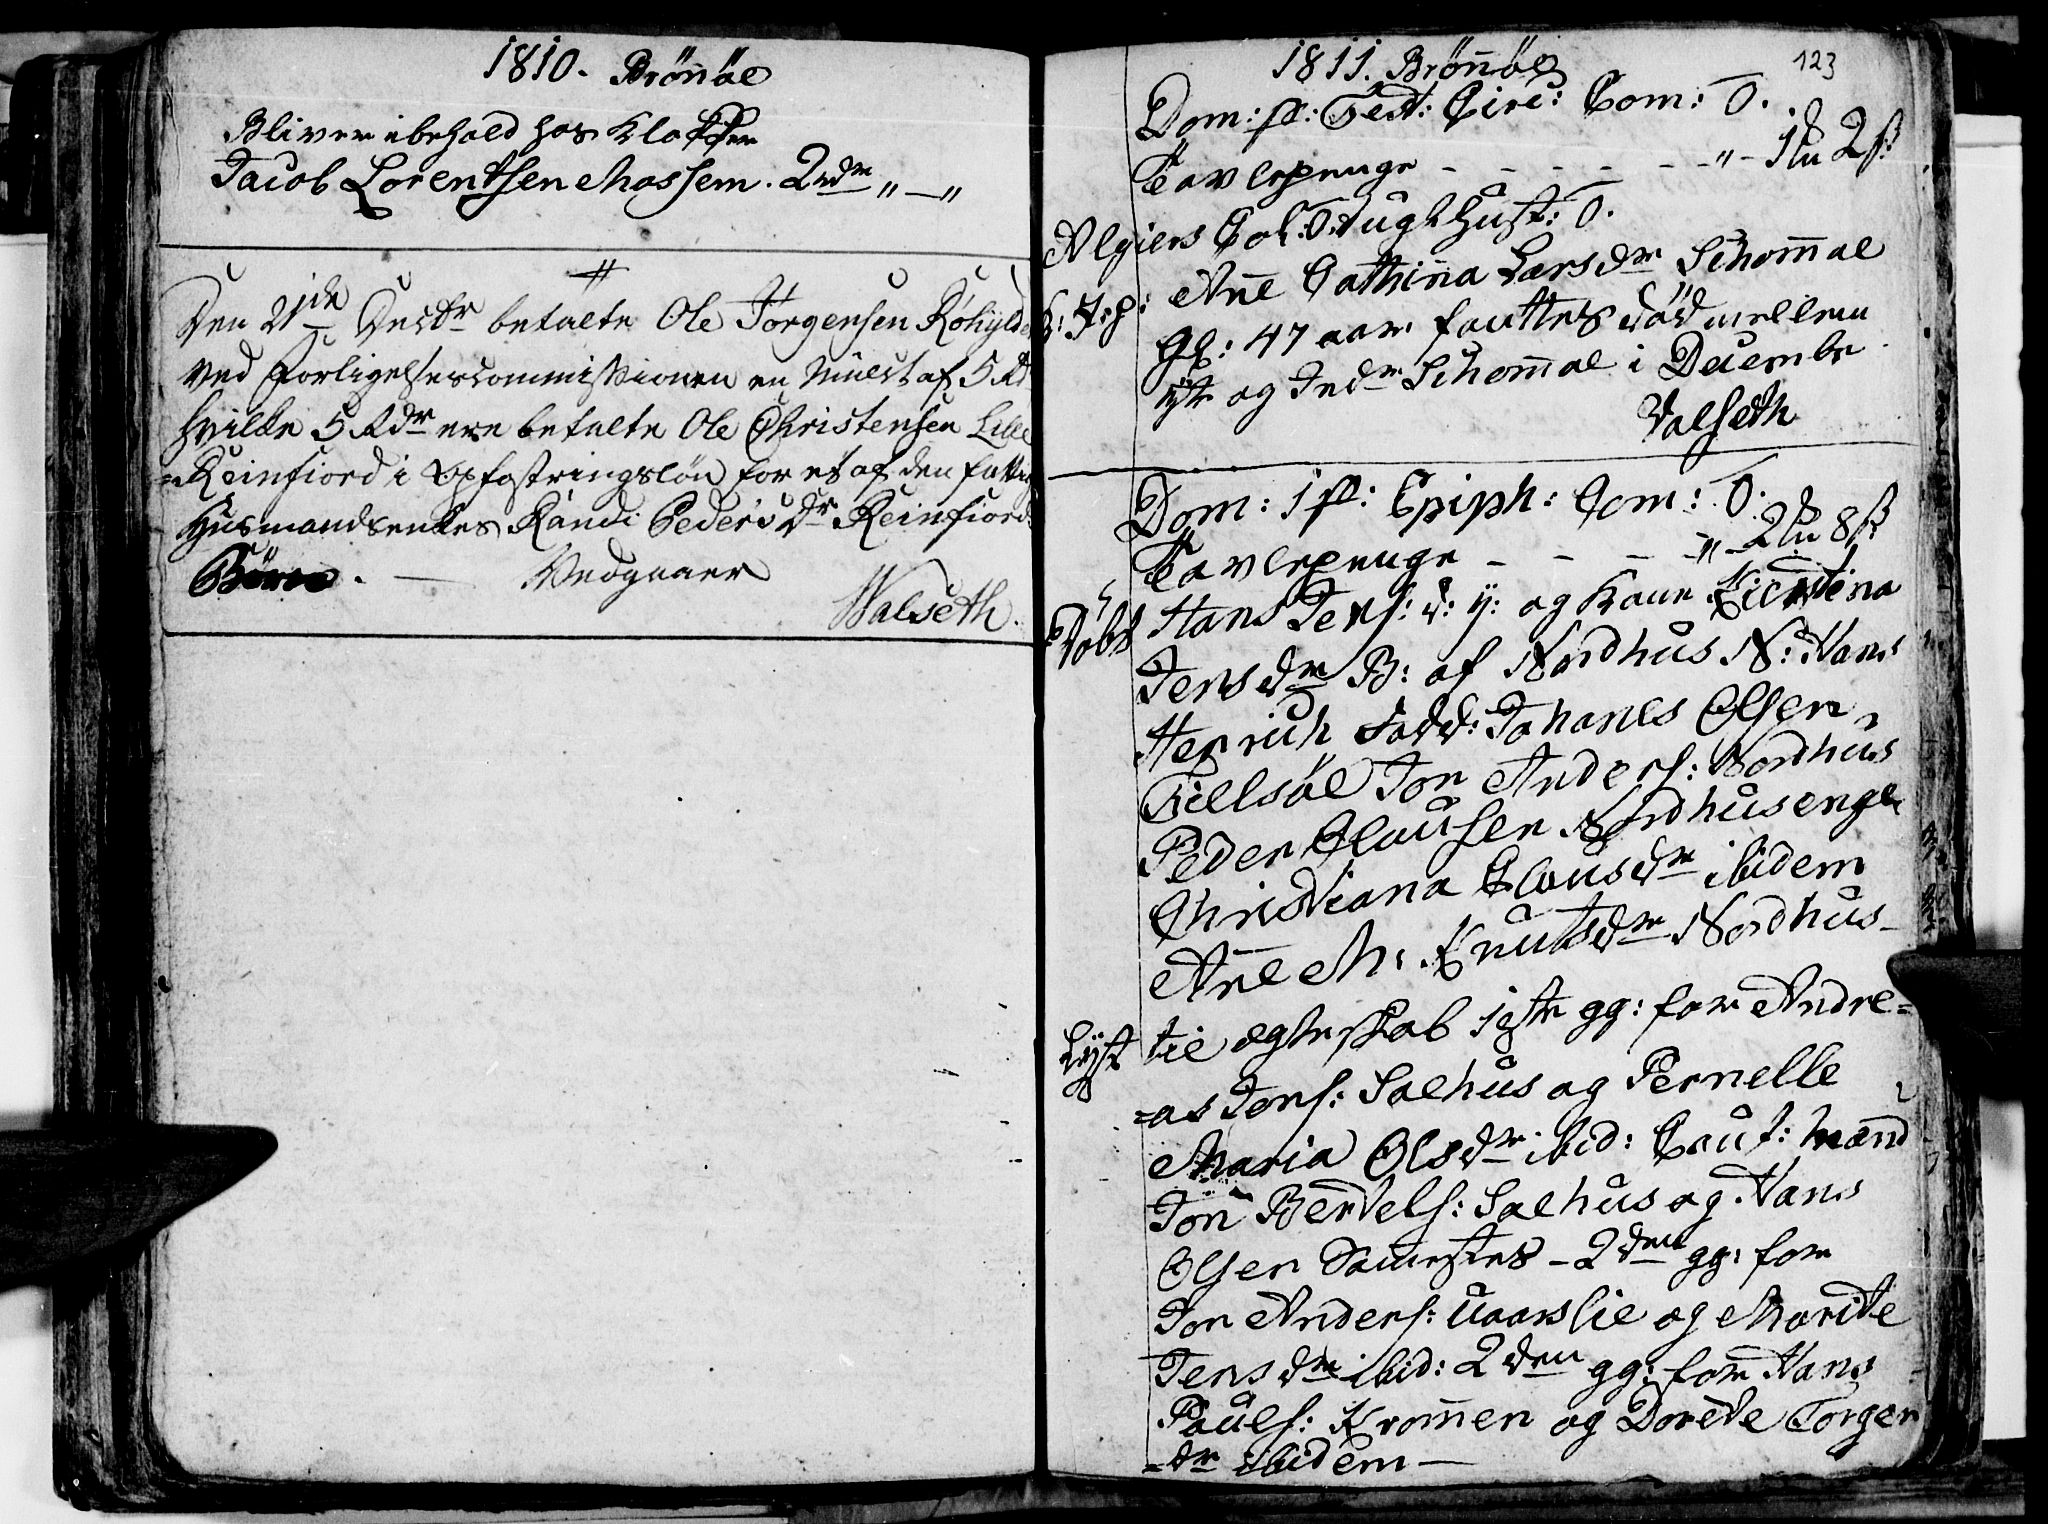 1810. Brönöe
Bliver i behold hos Klokker
Jacob Lorentsen Mossem. 2rdr „ — „
Den 21de Decbr betalte Ole Jörgensen
ved Forligelsescommissionen en Mulct af 5 Rd
hvilke 5 Rdr ere betalte Ole Christensen Lille
=Reinfiord i Opfostringslön for et af den fattige
Huusmandsenkes Randi Peders Dr Reinfiord
Börn. — Vedgaaer
Walseth.
1811. Brönöe
123
Dom: p: Fest: Circ: Com: O.
Tavlepenge - - - - - - „ - 1 2 ß
Algiers Col: O. Hust: O.
Ane Cathrina Larsdr Schomoe
Gl: 47 aar död mellem
og Schomoe i Decembr
Valseth
Dom: 1 p: Epiph: Com: O.
Tavlepenge - - - - „ - 2 8 ß
Döbt Hans Jens: d: y: og Kone
Jensdr B: af Nordhus N: Hans
Henrich Fadd: Johanes Olsen
Tillsöe Jon Anders: Nordhus
Peder Clausen Nordhusenge
Christiana Clausdr ibidem
Ane M: Knutsdr Nordhus-
Lyst til ægteskab 1ste gg: for Andre=
=as Jons: Salhus og Pernelle
Maria Olsdr ibid: Caut: mænd
Jon Bertels: Salhus og Hans
Olsen - 2den gg: for
Jon Anders: og Marite
Jensdr ibid: 2den gg: for Hans
Pauls: Kromen og Dorete Torger
=dr ibidem —